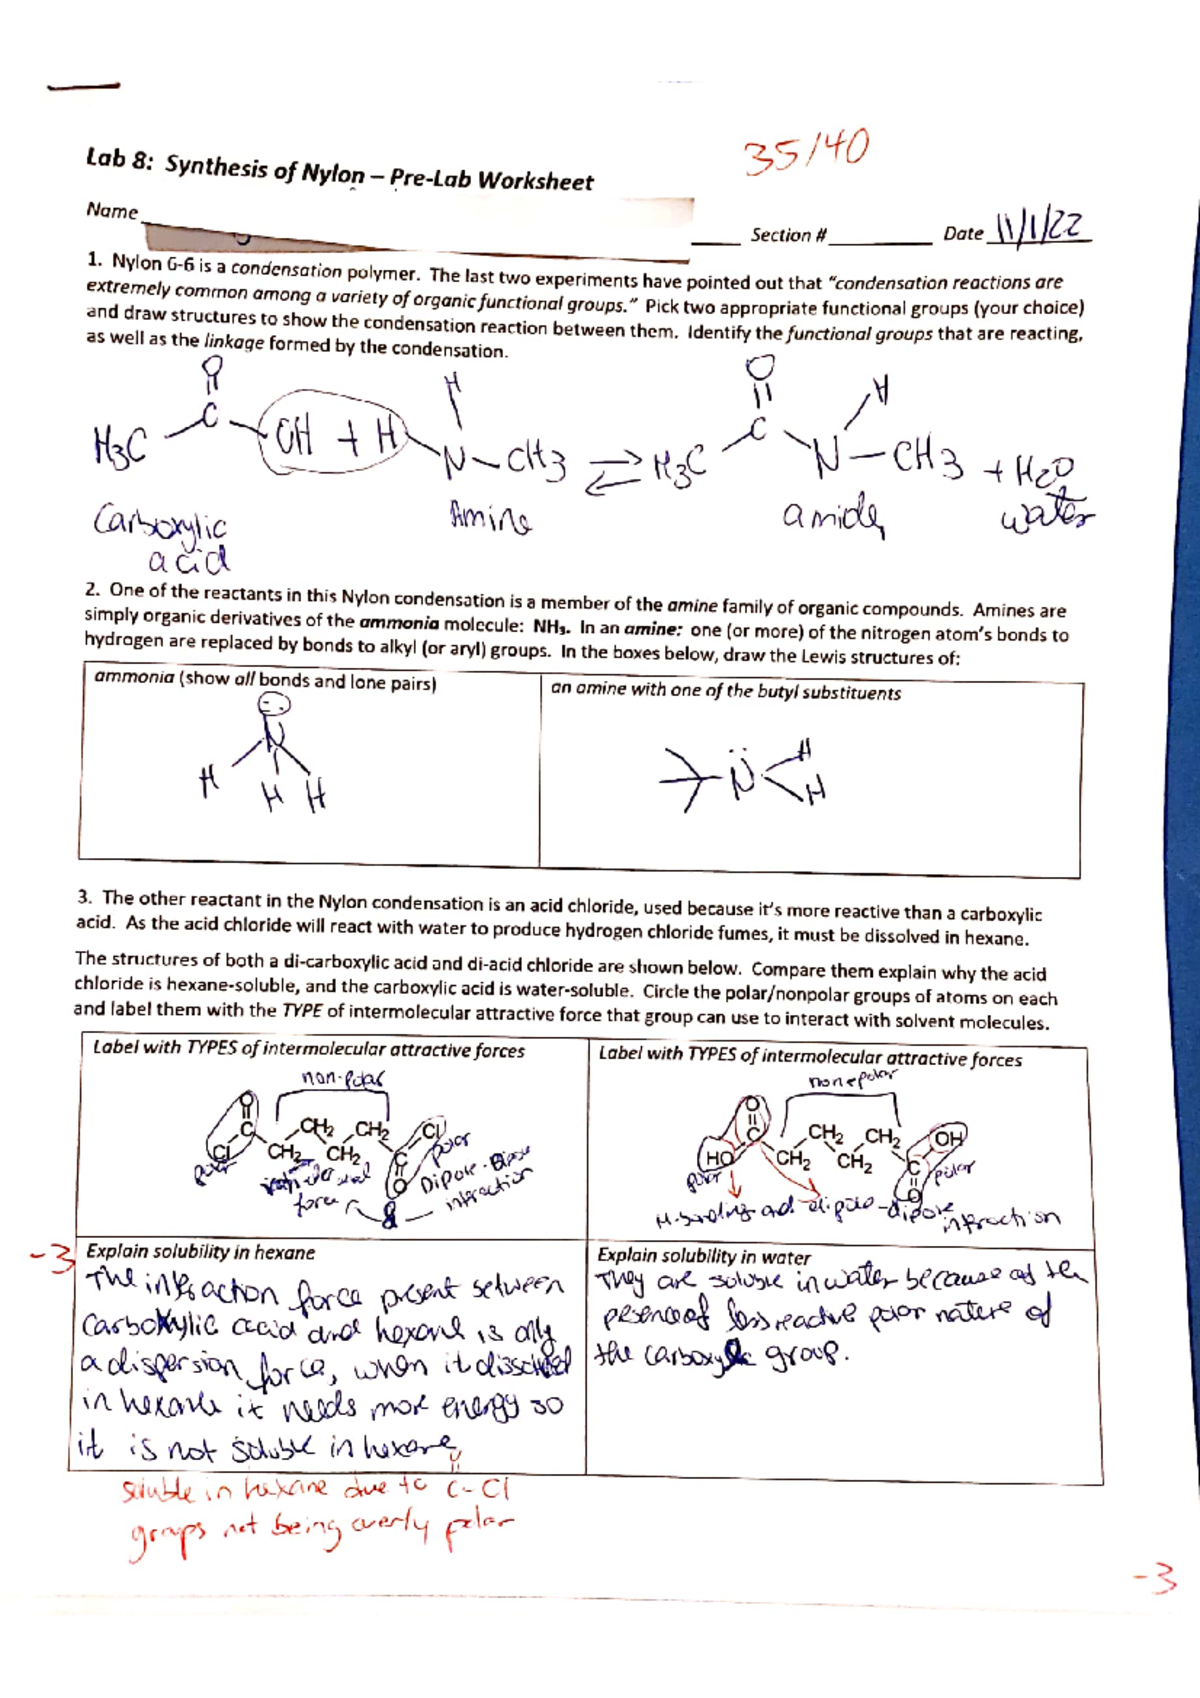 35/40
Lab 8: Synthesis of Nylon – Pre-Lab Worksheet
Name Section # Date 11/1/22
1. Nylon 6-6 is a condensation polymer. The last two experiments have pointed out that "condensation reactions are
extremely common among a variety of organic functional groups." Pick two appropriate functional groups (your choice)
and draw structures to show the condensation reaction between them. Identify the functional groups that are reacting,
as well as the linkage formed by the condensation.
O H O H
H3C C OH + H N CH3 ⇌ H3C C N CH3 + H2O
Carboxylic acid Amine amide water
2. One of the reactants in this Nylon condensation is a member of the amine family of organic compounds. Amines are
simply organic derivatives of the ammonia molecule: NH₃. In an amine: one (or more) of the nitrogen atom's bonds to
hydrogen are replaced by bonds to alkyl (or aryl) groups. In the boxes below, draw the Lewis structures of:
ammonia (show all bonds and lone pairs) an amine with one of the butyl substituents
N H H H
N H H
3. The other reactant in the Nylon condensation is an acid chloride, used because it's more reactive than a carboxylic
acid. As the acid chloride will react with water to produce hydrogen chloride fumes, it must be dissolved in hexane.
The structures of both a di-carboxylic acid and di-acid chloride are shown below. Compare them explain why the acid
chloride is hexane-soluble, and the carboxylic acid is water-soluble. Circle the polar/nonpolar groups of atoms on each
and label them with the TYPE of intermolecular attractive force that group can use to interact with solvent molecules.
Label with TYPES of intermolecular attractive forces
non-polar
O C Cl CH2 CH2 CH2 CH2 C O Cl
polar polar
force
Dipole-Dipole
interaction
Label with TYPES of intermolecular attractive forces
nonpolar
O C HO CH2 CH2 CH2 CH2 C O OH
polar polar
H-bonding and dipole-dipole
intraction
-3
Explain solubility in hexane
The interaction force present between
Carboxylic acid and hexane is only
a dispersion force, when it dissolved
in hexane it needs more energy so
it is not soluble in hexane,
Explain solubility in water
They are soluble in water because of the
presence of less reactive polar nature of
the carboxylic group.
soluble in hexane due to C-Cl
O
groups not being overly polar
-3